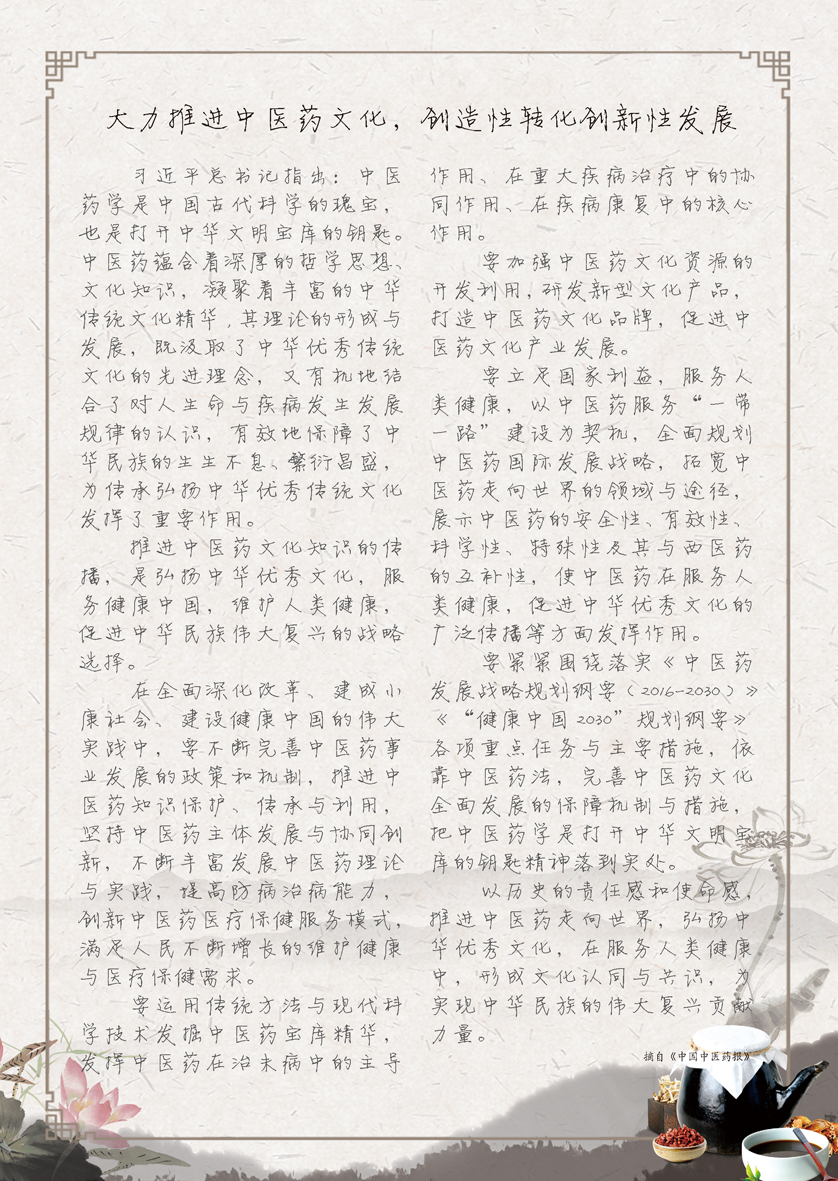 大力推进中医药文化，创造性转化创新性发展
习近平总书记指出：中医
药学是中国古代科学的瑰宝，
也是打开中华文明宝库的钥匙。
中医药蕴含着深厚的哲学思想、
文化知识，凝聚着丰富的中华
传统文化精华，其理论的形成与
发展，既汲取了中华优秀传统
文化的先进理念，又有机地结
合了对人生命与疾病发生发展
规律的认识，有效地保障了中
华民族的生生不息、繁衍昌盛，
为传承弘扬中华优秀传统文化
发挥了重要作用。
推进中医药文化知识的传
播，是弘扬中华优秀文化，服
务健康中国，维护人类健康，
促进中华民族伟大复兴的战略
选择。
在全面深化改革、建成小
康社会、建设健康中国的伟大
实践中，要不断完善中医药事
业发展的政策和机制，推进中
医药知识保护、传承与利用，
坚持中医药主体发展与协同创
新，不断丰富发展中医药理论
与实践，提高防病治病能力，
创新中医药医疗保健服务模式，
满足人民不断增长的维护健康
与医疗保健需求。
要运用传统方法与现代科
学技术发掘中医药宝库精华，
发挥中医药在治未病中的主导
作用、在重大疾病治疗中的协
同作用、在疾病康复中的核心
作用。
要加强中医药文化资源的
开发利用，研发新型文化产品，
打造中医药文化品牌，促进中
医药文化产业发展。
要立足国家利益，服务人
类健康，以中医药服务“一带
一路”建设为契机，全面规划
中医药国际发展战略，拓宽中
医药走向世界的领域与途径，
展示中医药的安全性、有效性、
科学性、特殊性及其与西医药
的互补性，使中医药在服务人
类健康，促进中华优秀文化的
广泛传播等方面发挥作用。
要紧紧围绕落实《中医药
发展战略规划纲要（2016-2030）》
《“健康中国2030”规划纲要》
各项重点任务与主要措施，依
靠中医药法，完善中医药文化
全面发展的保障机制与措施，
把中医药学是打开中华文明宝
库的钥匙精神落到实处。
以历史的责任感和使命感，
推进中医药走向世界，弘扬中
华优秀文化，在服务人类健康
中，形成文化认同与共识，为
实现中华民族的伟大复兴贡献
力量。
摘自《中国中医药报》